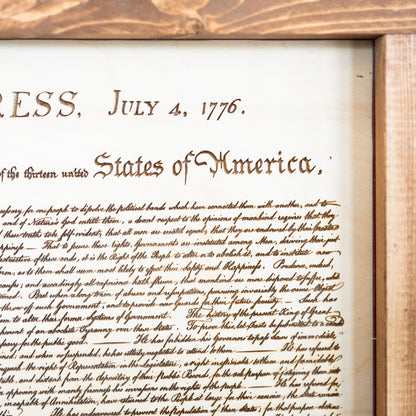 RESS, JULY 4, 1776.
of the thirteen united States of America,
cessary for one people to dissolve the political bands which have connected them with another, and to
and of Nature's God entitle them, a decent respect to the opinions of mankind requires that they
these truths to be self-evident, that all men are created equal, that they are endowed by their Creator
appiness — That to secure these rights, Governments are instituted among Men, deriving their just
destructive of these ends, it is the Right of the People to alter or to abolish it, and to institute new
form, as to them shall seem most likely to effect their Safety and Happiness. Prudence, indeed,
causes; and accordingly all experience hath shewn, that mankind are more disposed to suffer, while
accustomed. But when a long train of abuses and usurpations, pursuing invariably the same Object
throw off such Government, and to provide new Guards for their future security. — Such has
them to alter their former Systems of Government. The history of the present King of Great
establishment of an absolute Tyranny over these States. To prove this, let Facts be submitted to a candid
necessary for the public good. — He has forbidden his Governors to pass Laws of immediate
obtained; and when so suspended, he has utterly neglected to attend to them. — He has refused
relinquish the right of Representation in the Legislature, a right inestimable to them and formidable
, and distant from the depository of their Public Records, for the sole purpose of fatiguing them into
opposing with manly firmness his invasions on the rights of the people. — He has refused for
incapable of Annihilation, have returned to the People at large for their exercise; the State remain
He has endeavoured to prevent the population of these States; for that purpose